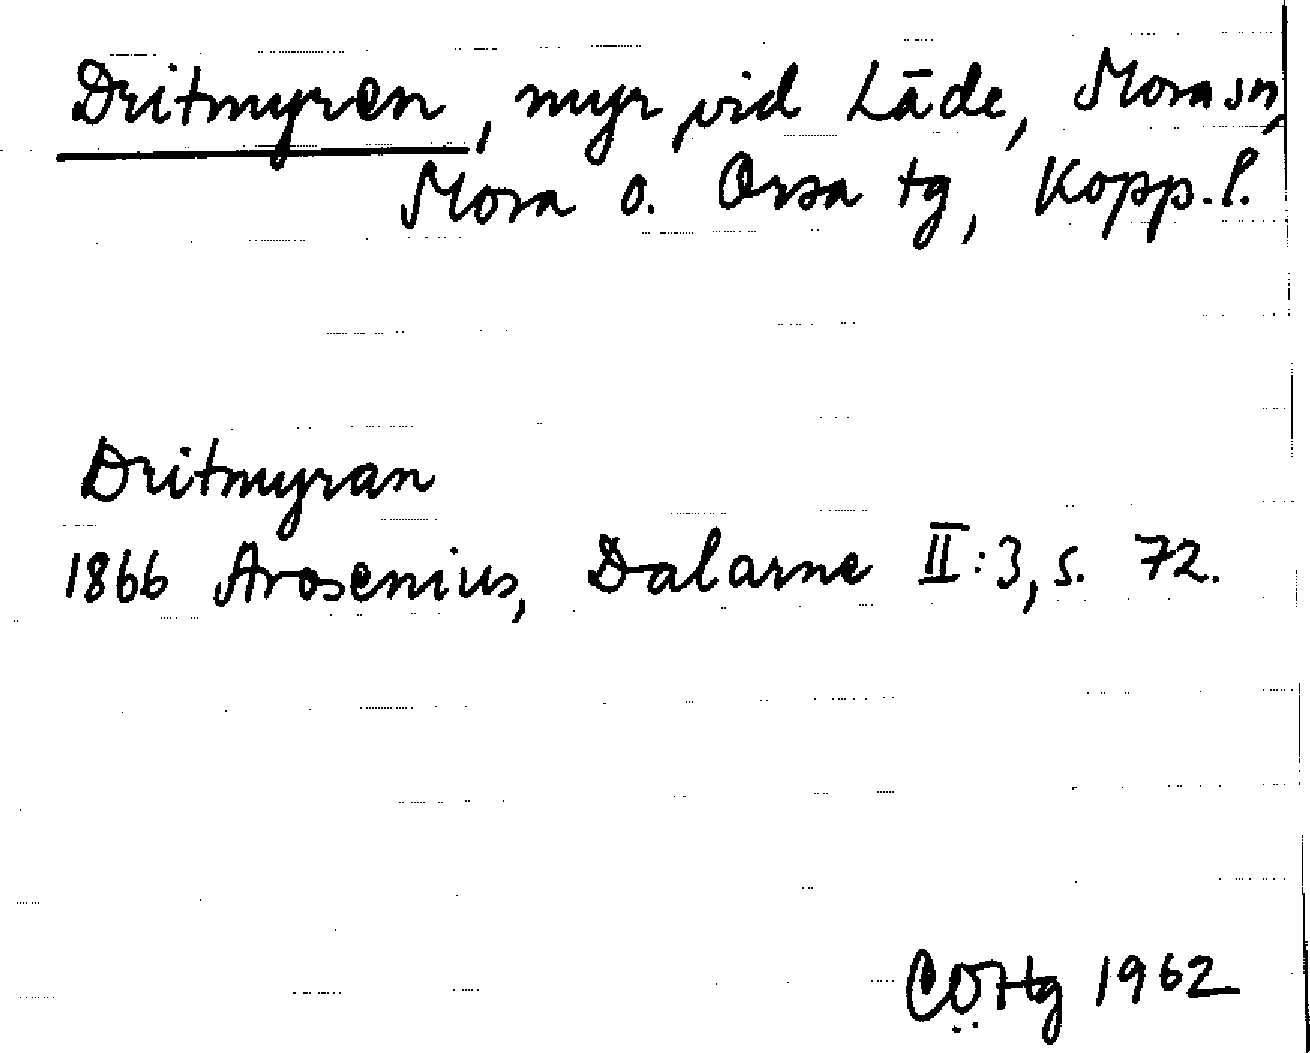 Dritmyren, myr vid Läde, Mora sn,
Mora o. Orsa tg, Kopp. l.
Dritmyran
1866 Arosenius, Dalarne II:3, s. 72.
1962